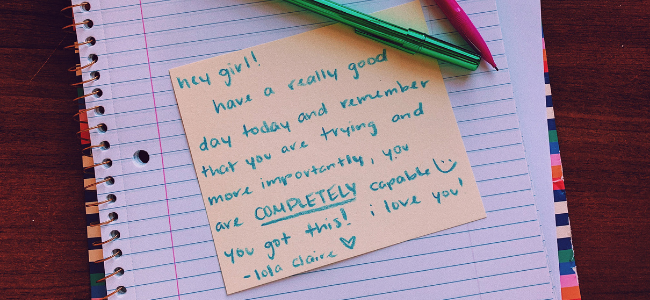 hey girl!
have a really good
day today and remember
that you are trying and
more importantly, you
are COMPLETELY capable
you got this! i love you!
-lola claire